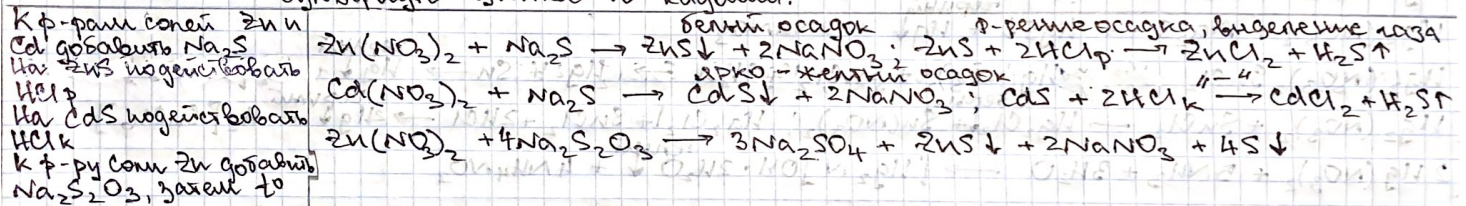 К р-рам солей Zn и
Cd добавить Na₂S
На ZnS подействовать
HClр
На CdS подействовать
HClк
К р-ру соли Zn добавить
Na₂S₂O₃, затем t°
белый осадок р-рение осадка, выделение газа
Zn(NO₃)₂ + Na₂S → ZnS↓ + 2NaNO₃; ZnS + 2HClр. → ZnCl₂ + H₂S↑
ярко-желтый осадок "—"
Cd(NO₃)₂ + Na₂S → CdS↓ + 2NaNO₃; CdS + 2HClк → CdCl₂ + H₂S↑
Zn(NO₃)₂ + 4Na₂S₂O₃ → 3Na₂SO₄ + ZnS↓ + 2NaNO₃ + 4S↓